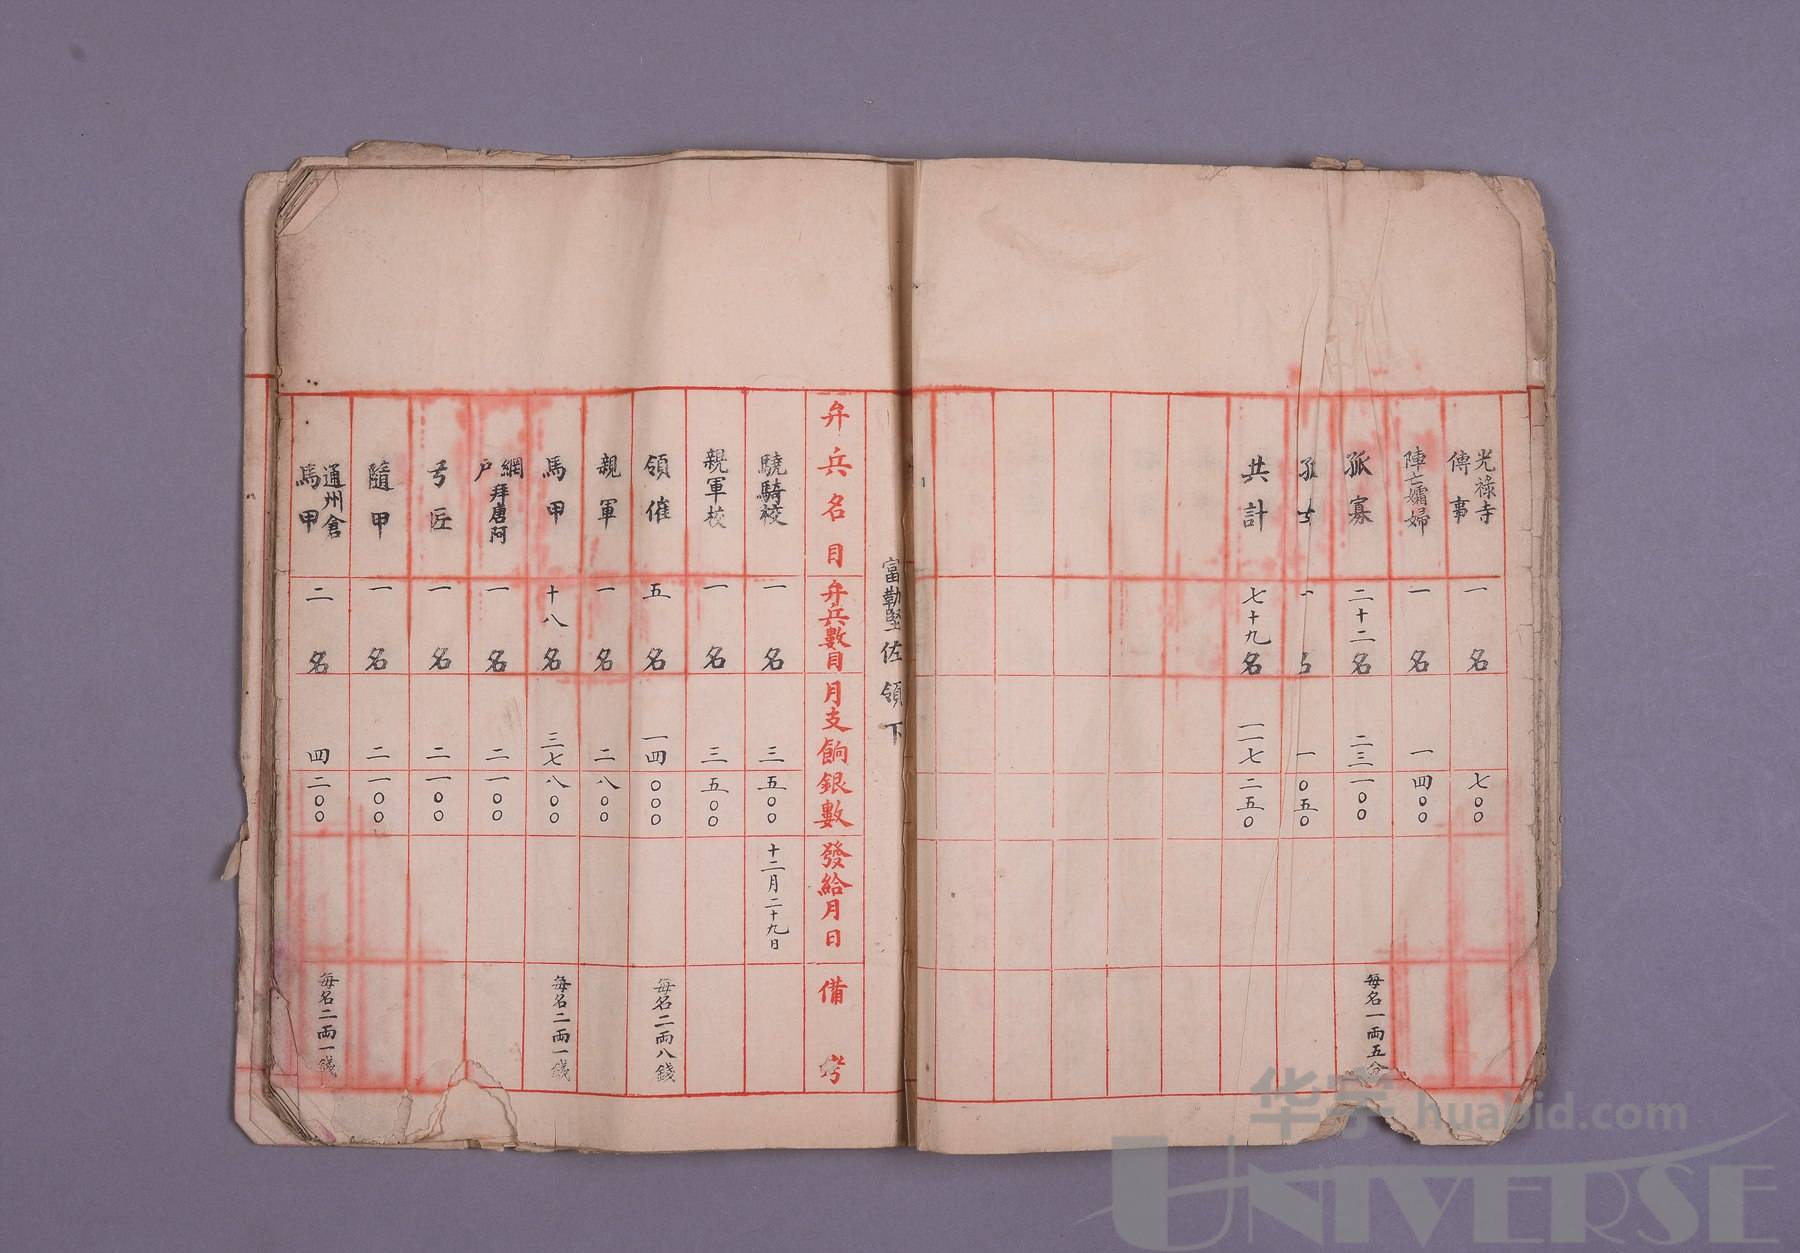 光祿寺
傳事
一名
七〇〇
陣亡孀婦
一名
一四〇〇
孤寡
二十二名
二三一〇〇
每名一兩五分
一
一〇五〇
共計
七十九名
一一七二五〇
富勒堅佐領下
弁兵名目
弁兵數目
月支餉銀數
發給月日
備考
驍騎校
一名
三五〇〇
十二月二十九日
親軍校
一名
三五〇〇
領催
五名
一四〇〇〇
每名二兩八錢
親軍
一名
二八〇〇
馬甲
十八名
三七八〇〇
每名二兩一錢
網戶拜唐阿
一名
二一〇〇
弓匠
一名
二一〇〇
隨甲
一名
二一〇〇
通州倉
馬甲
二名
四二〇〇
每名二兩一錢
华宇 huabid.com
UNIVERSE